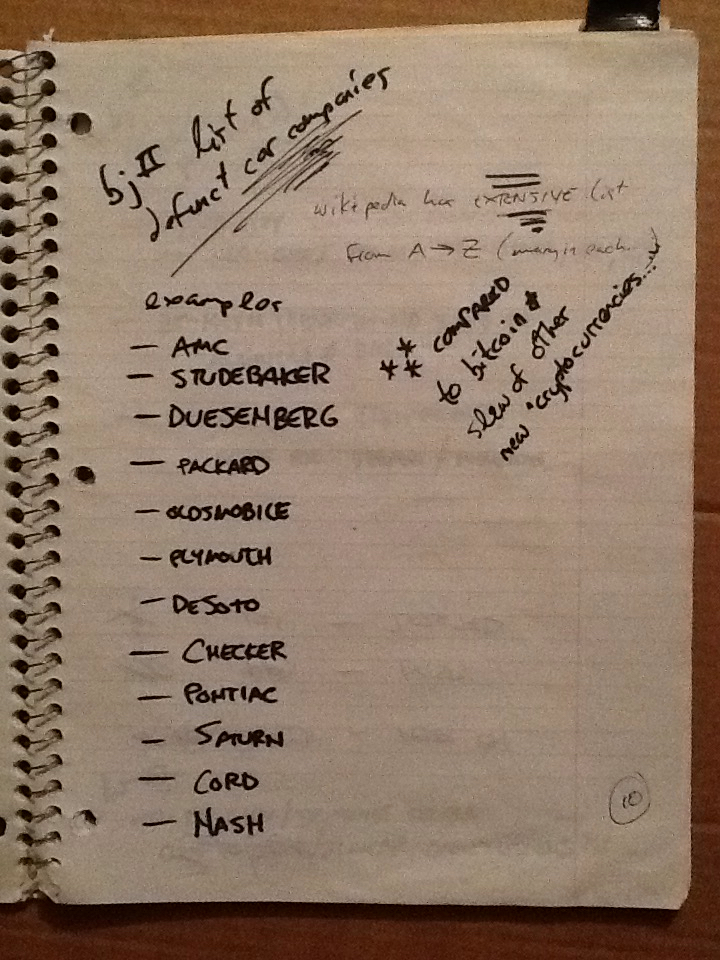 bjII list of
defunct car companies
wikipedia has EXTENSIVE list
from A → Z (many in each...)
examples
** COMPARED
** to bitcoin &
slew of other
new 'cryptocurrencies...
— AMC
— STUDEBAKER
— DUESEMBERG
— PACKARD
— OLDSMOBILE
— PLYMOUTH
— DESOTO
— CHECKER
— PONTIAC
— SATURN
— CORD
— NASH
10